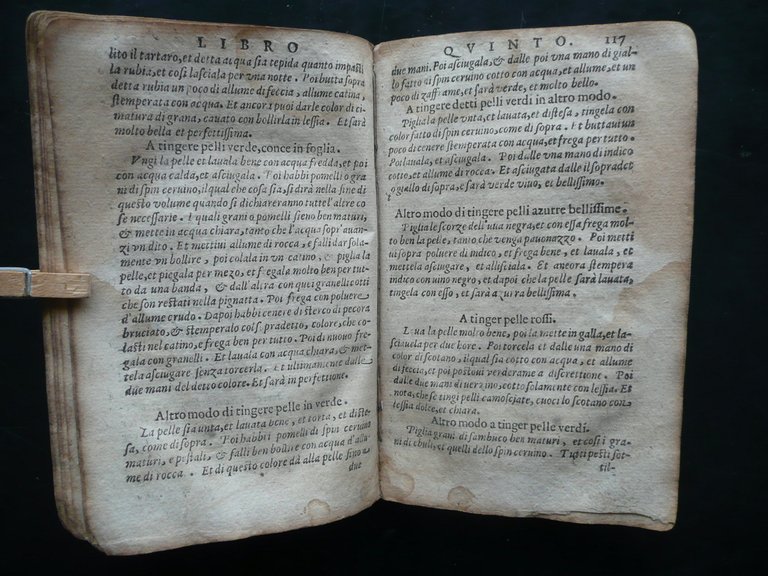 LIBRO
lito il tartaro, et detta acqua sia tepida quanto impasti
la rubia, et così lasciala per vna notte. Poi butta sopra
detta rubia un poco di allume di feccia, allume catina,
stemperata con acqua. Et ancora puoi darle color di ci
matura di grana, cauato con bollirla in lessia. Et sarà
molto bella et perfettissima.
A tingere pelli verde, conce in foglia.
Vngi la pelle et lauala bene con acqua fredda, et poi
con acqua calda, et asciugala. Poi habbi pomelli o gra
ni di spin ceruino, il qual che cosa sia, si dirà nella fine di
questo volume quando si dichiareranno tutte l'altre co
se necessarie. I quali grani o pomelli sieno ben maturi,
& mette in acqua chiara, tanto che l'acqua sopr'auan-
zi vn dito. Et mettiui allume di rocca, e falli dar sola-
mente vn bollire, poi colala in vn catino, & piglia la
pelle, et piegala per mezo, et fregala molto ben per tut-
to da una banda, & dall'altra con quei granelli cotti
che son restati nella pignatta. Poi frega con poluere
d'allume crudo. Dapoi habbi cenere di sterco di pecora
bruciato, & stemperalo col sopradetto, colore, che co-
lasti nel catino, e frega ben per tutto. Poi di nuouo fre-
gala con granelli. Et lauala con acqua chiara, & met-
tela asciugare senza torcerla. Et ultimamente dalle
due mani del detto colore. Et sarà in perfettione.
Altro modo di tingere pelle in verde.
La pelle sia unta, et lauata bene, et torta, et diste-
sa, come di sopra. Poi habbi pomelli di spin ceruino
maturi, e pestali, & falli ben bollire con acqua d'allu-
me di rocca. Et di questo colore dà alla pelle sino a
due
QVINTO. 117
due mani. Poi asciugala, & dalle poi vna mano di gial-
lo fatto di spin ceruino cotto con acqua, et allume, et un
poco di zafframe, et sarà verde, et molto bello.
A tingere detti pelli verdi in altro modo.
Piglia la pelle vnta, et lauata, et distesa, tingela con
color fatto di spin ceruino, come di sopra. Et buttaui un
poco di cenere stemperata con acqua, et frega per tutto.
Poi lauala, et asciugala. Poi dalle vna mano di indico
cotto, et allume di rocca. Et asciugata dalle il sopradet
o giallo di sopra, e sarà verde viuo, et bellissimo.
Altro modo di tingere pelli azurre bellissime.
Piglia le scorze dell'uua negra, et con essa frega mol-
to ben la pelle, tanto che venga pauonazzo. Poi metti
ui sopra poluere di indico, et frega bene, et lauala, et
mettela asciugare, et allisciala. Et ancora stempera
indico con uino negro, et dapoi che la pelle sarà lauata,
tingela con esso, et sarà azurra bellissima.
A tinger pelle rossi.
Laua la pelle molto bene, poi la mette in galla, et la-
sciauela per due hore. Poi torcela et dalle una mano di
color di scotano, il qual sia cotto con acqua, et allume
di feccia, et poi postoui verderame a discretione. Poi
dalle due mani di uerzino, cotto solamente con lessia. Et
nota, che se tingi pelli camosciate, cuoci lo scotano con
lessia dolce, et chiara.
Altro modo a tinger pelle verdi.
Piglia grani di sambuco ben maturi, et così i gra-
ni di ebuli, et quelli dello spin ceruino. Tutti pesti sot-
til-